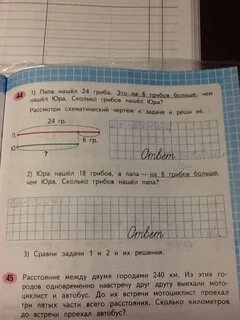 44 1) Папа нашёл 24 гриба. Это на 6 грибов больше, чем
нашёл Юра. Сколько грибов нашёл Юра?
Рассмотри схематический чертёж к задаче и реши её.
24 гр.
П.
6 гр.
Ю.
?
Ответ
2) Юра нашёл 18 грибов, а папа — на 6 грибов больше,
чем Юра. Сколько грибов нашёл папа?
Ответ
3) Сравни задачи 1 и 2 и их решения.
45 Расстояние между двумя городами 240 км. Из этих го-
родов одновременно навстречу друг другу выехали мото-
циклист и автобус. До их встречи мотоциклист проехал
три пятых части всего расстояния. Сколько километров
до встречи проехал автобус?